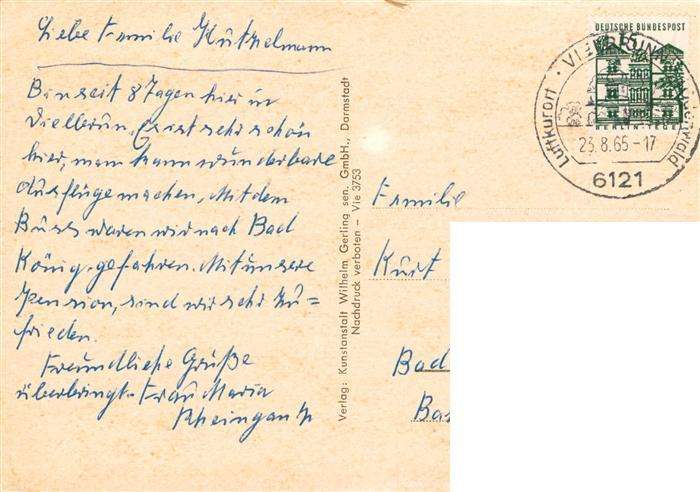 Liebe Familie Kützelmann
Bin seit 8 Tagen hier in
Vielbrun, Es ist sehr schön
hier, man kann wunderbare
Ausflüge machen, Mit dem
Buss waren wir nach Bad
König gefahren. Mit unsere
Pension, sind wir sehr zu=
frieden.
Freundliche Grüße
überbringt Frau Maria
Rheingans
Verlag: Kunstanstalt Wilhelm Gerling sen. GmbH., Darmstadt
Nachdruck verboten – Vie 3753
DEUTSCHE BUNDESPOST
15
BERLIN-TEGEL
Luftkurort · VIELBRUNN
23.8.65-17
6121
Familie
Kurt
Bad
Bas